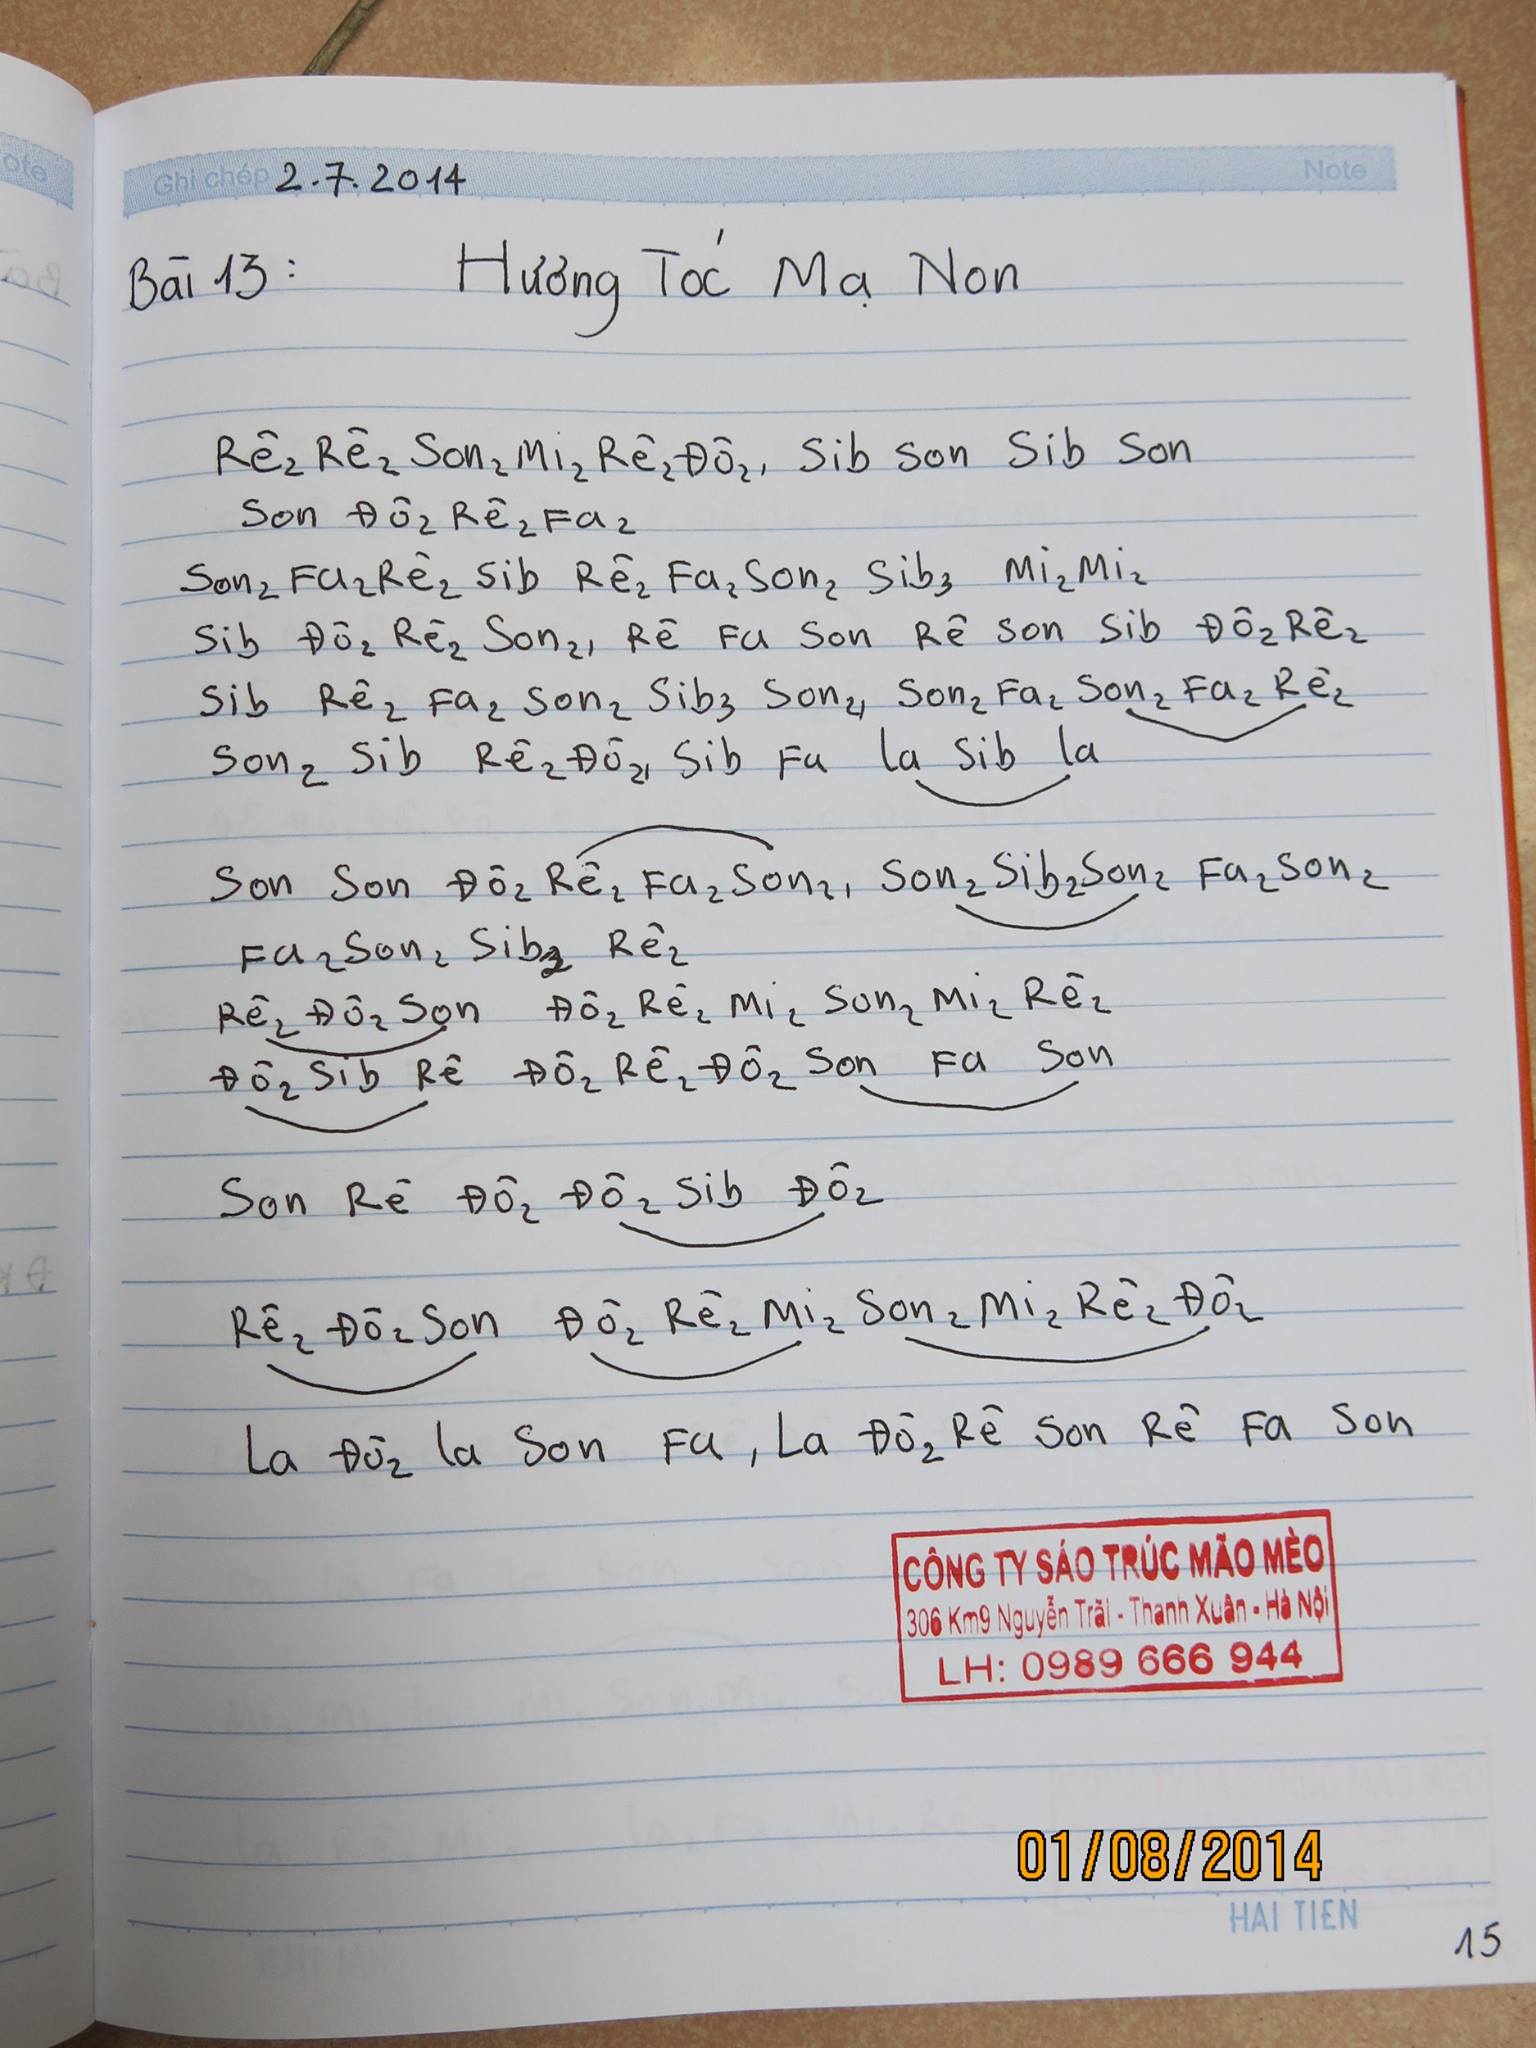 ote
Ghi chép 2.7.2014 Note
Bài 13: Hương Tóc Mạ Non
Rê₂ Rê₂ Son₂ Mi₂ Rê₂ Đô₂, Sib Son Sib Son
Son Đô₂ Rê₂ Fa₂
Son₂ Fa₂ Rê₂ Sib Rê₂ Fa₂ Son₂ Sib₃ Mi₂ Mi₂
Sib Đô₂ Rê₂ Son₂, Rê Fa Son Rê Son Sib Đô₂ Rê₂
Sib Rê₂ Fa₂ Son₂ Sib₃ Son₂, Son₂ Fa₂ Son₂ Fa₂ Rê₂
Son₂ Sib Rê₂ Đô₂, Sib Fa la Sib la
Son Son Đô₂ Rê₂ Fa₂ Son₂, Son₂ Sib₂ Son₂ Fa₂ Son₂
Fa₂ Son₂ Sib₂ Rê₂
Rê₂ Đô₂ Son Đô₂ Rê₂ Mi₂ Son₂ Mi₂ Rê₂
Đô₂ Sib Rê Đô₂ Rê₂ Đô₂ Son Fa Son
Son Rê Đô₂ Đô₂ Sib Đô₂
Rê₂ Đô₂ Son Đô₂ Rê₂ Mi₂ Son₂ Mi₂ Rê₂ Đô₂
La Đô₂ la Son Fa, La Đô₂ Rê Son Rê Fa Son
CÔNG TY SÁO TRÚC MÃO MÈO
306 Km9 Nguyễn Trãi - Thanh Xuân - Hà Nội
LH: 0989 666 944
01/08/2014
HAI TIEN
15